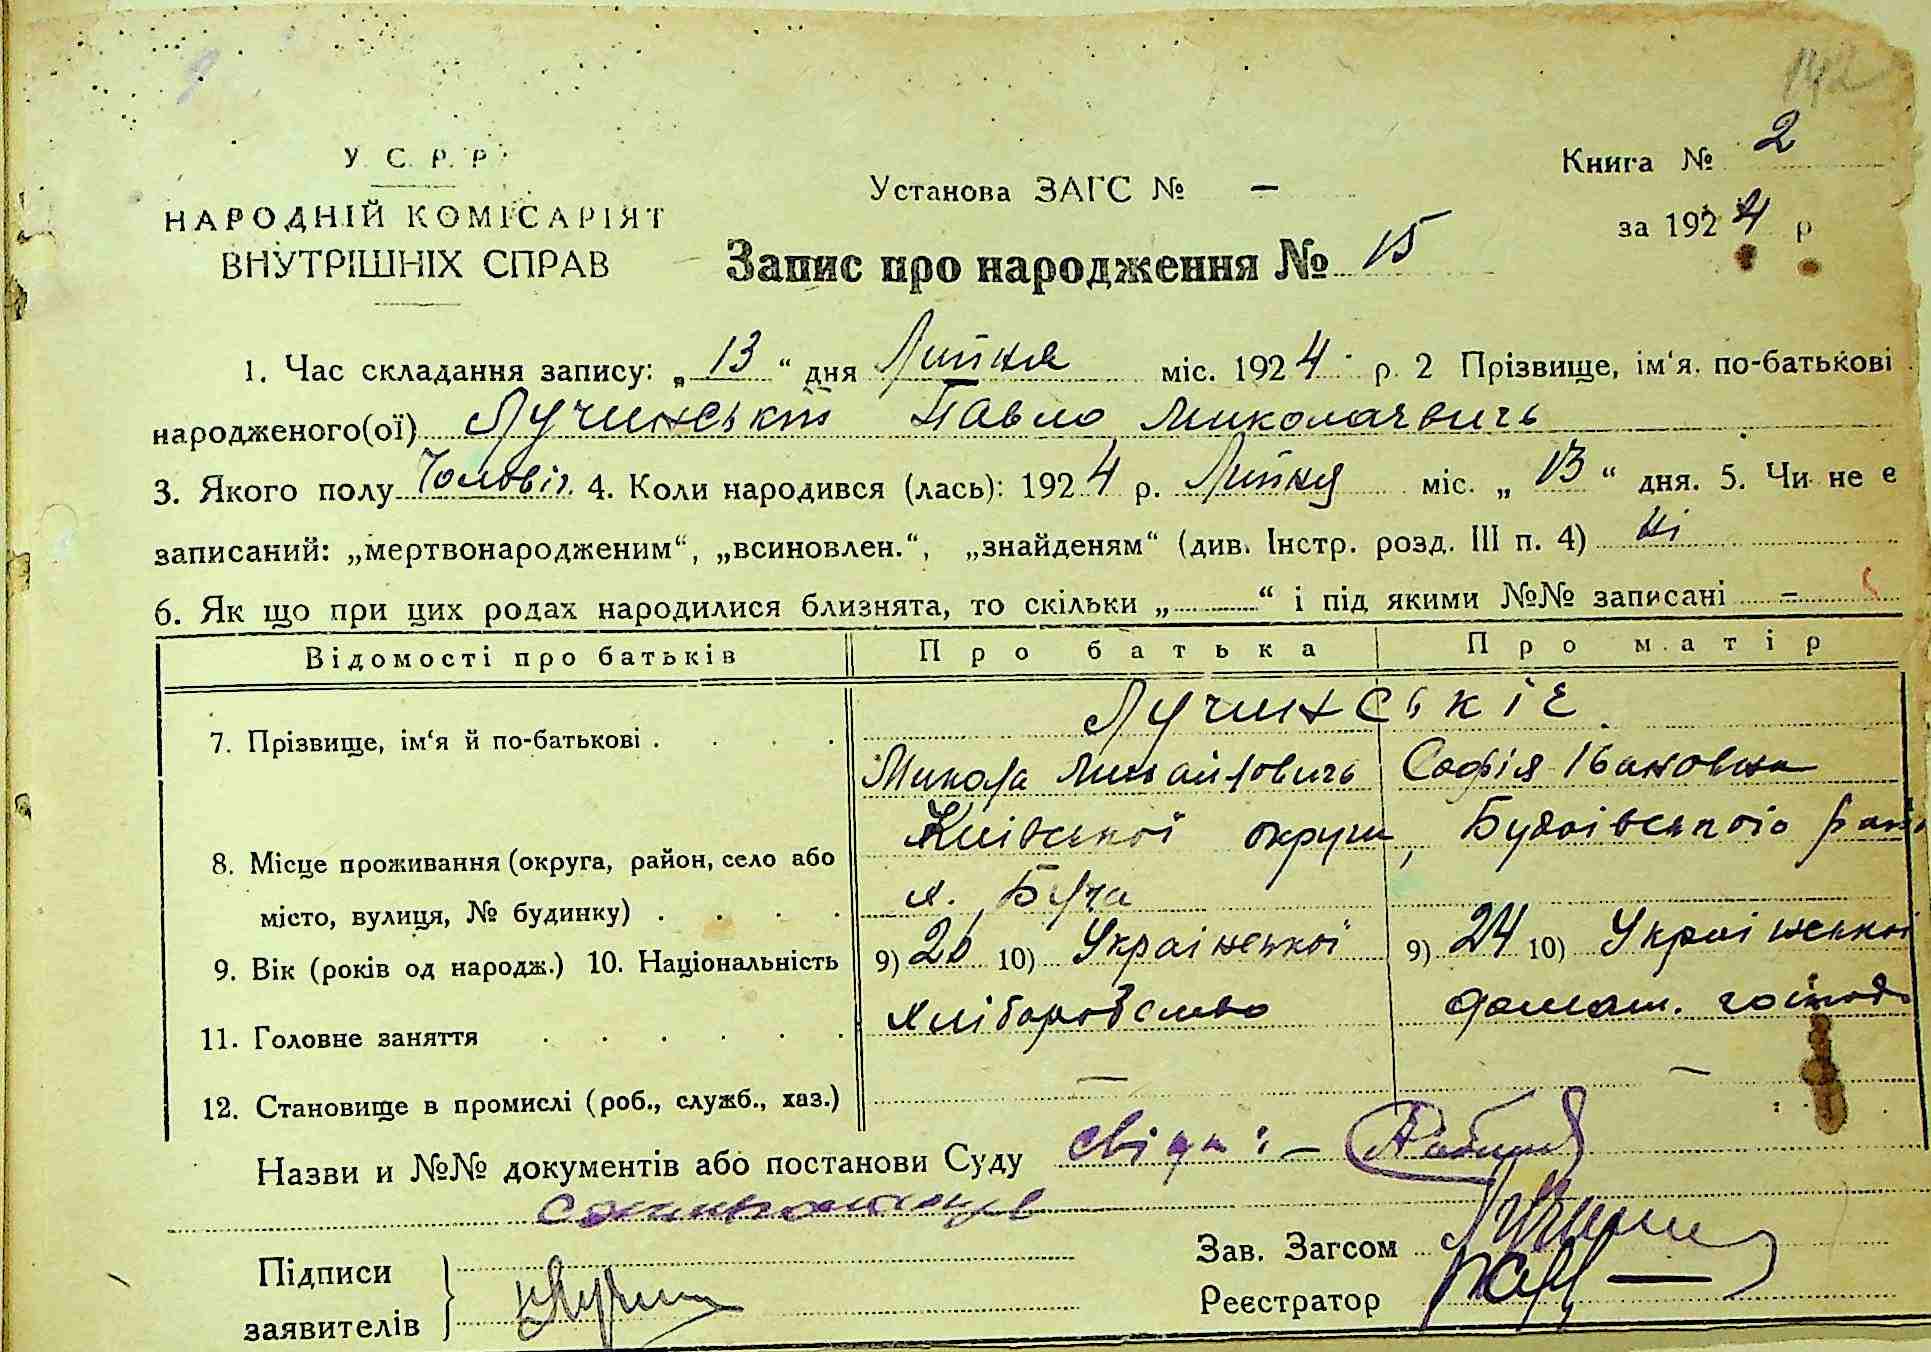 142
У. С. Р. Р.
НАРОДНІЙ КОМІСАРІЯТ
ВНУТРІШНІХ СПРАВ
Установа ЗАГС № —
Книга № 2
за 1924 р
Запис про народження № 15
1. Час складання запису: „ 13 “ дня Липня міс. 1924 р. 2 Прізвище, ім'я. по-батькові
народженого(ої) Лучинський Павло Миколаевичь
3. Якого полу Чоловіч. 4. Коли народився (лась): 1924 р. Липня міс. „ 13 “ дня. 5. Чи не є
записаний: „мертвонародженим“, „всиновлен.“, „знайденям“ (див. Інстр. розд. III п. 4) ні
6. Як що при цих родах народилися близнята, то скільки „ “ і під якими №№ записані –
Відомості про батьків Про батька Про матір
7. Прізвище, ім'я й по-батькові . . . . Лучинськіє
Микола Михайловичь Софія Івановна
8. Місце проживання (округа, район, село або Київської округи, Будаівського рай
місто, вулиця, № будинку) . . . . х. Буча
9. Вік (років од народж.) 10. Національність 9) 20 10) Української 9) 24 10) Української
11. Головне заняття . . . . . . хліборобство домаш. господ
12. Становище в промислі (роб., служб., хаз.) — —
Назви и №№ документів або постанови Суду свідк: –
Підписи
заявителів
Зав. Загсом
Реєстратор